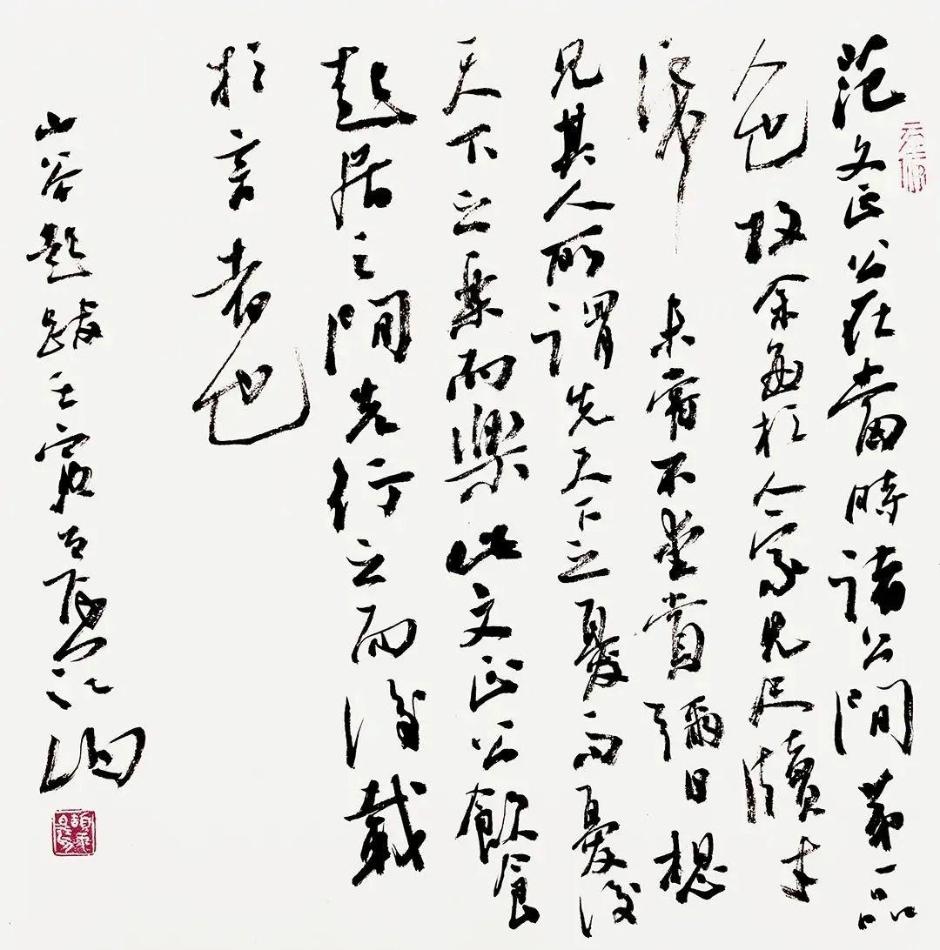 范文正公在當時諸公間第一品
人也故余每於人家見尺牘寸
紙未嘗不愛賞彌日想
見其人所謂先天下之憂而憂後
天下之樂而樂此文正公飲食
起居之間先行之而後載
於言者也
山谷題跋壬寅